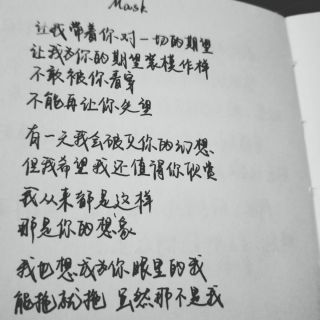 Mask
让我带着你对一切的期望
让我为你的期望装模作样
不敢被你看穿
不能再让你失望
有一天我会破灭你的幻想
但我希望我还值得你欣赏
我从来都是这样
那是你的想象
我也想成为你眼里的我
能拖就拖 虽然那不是我